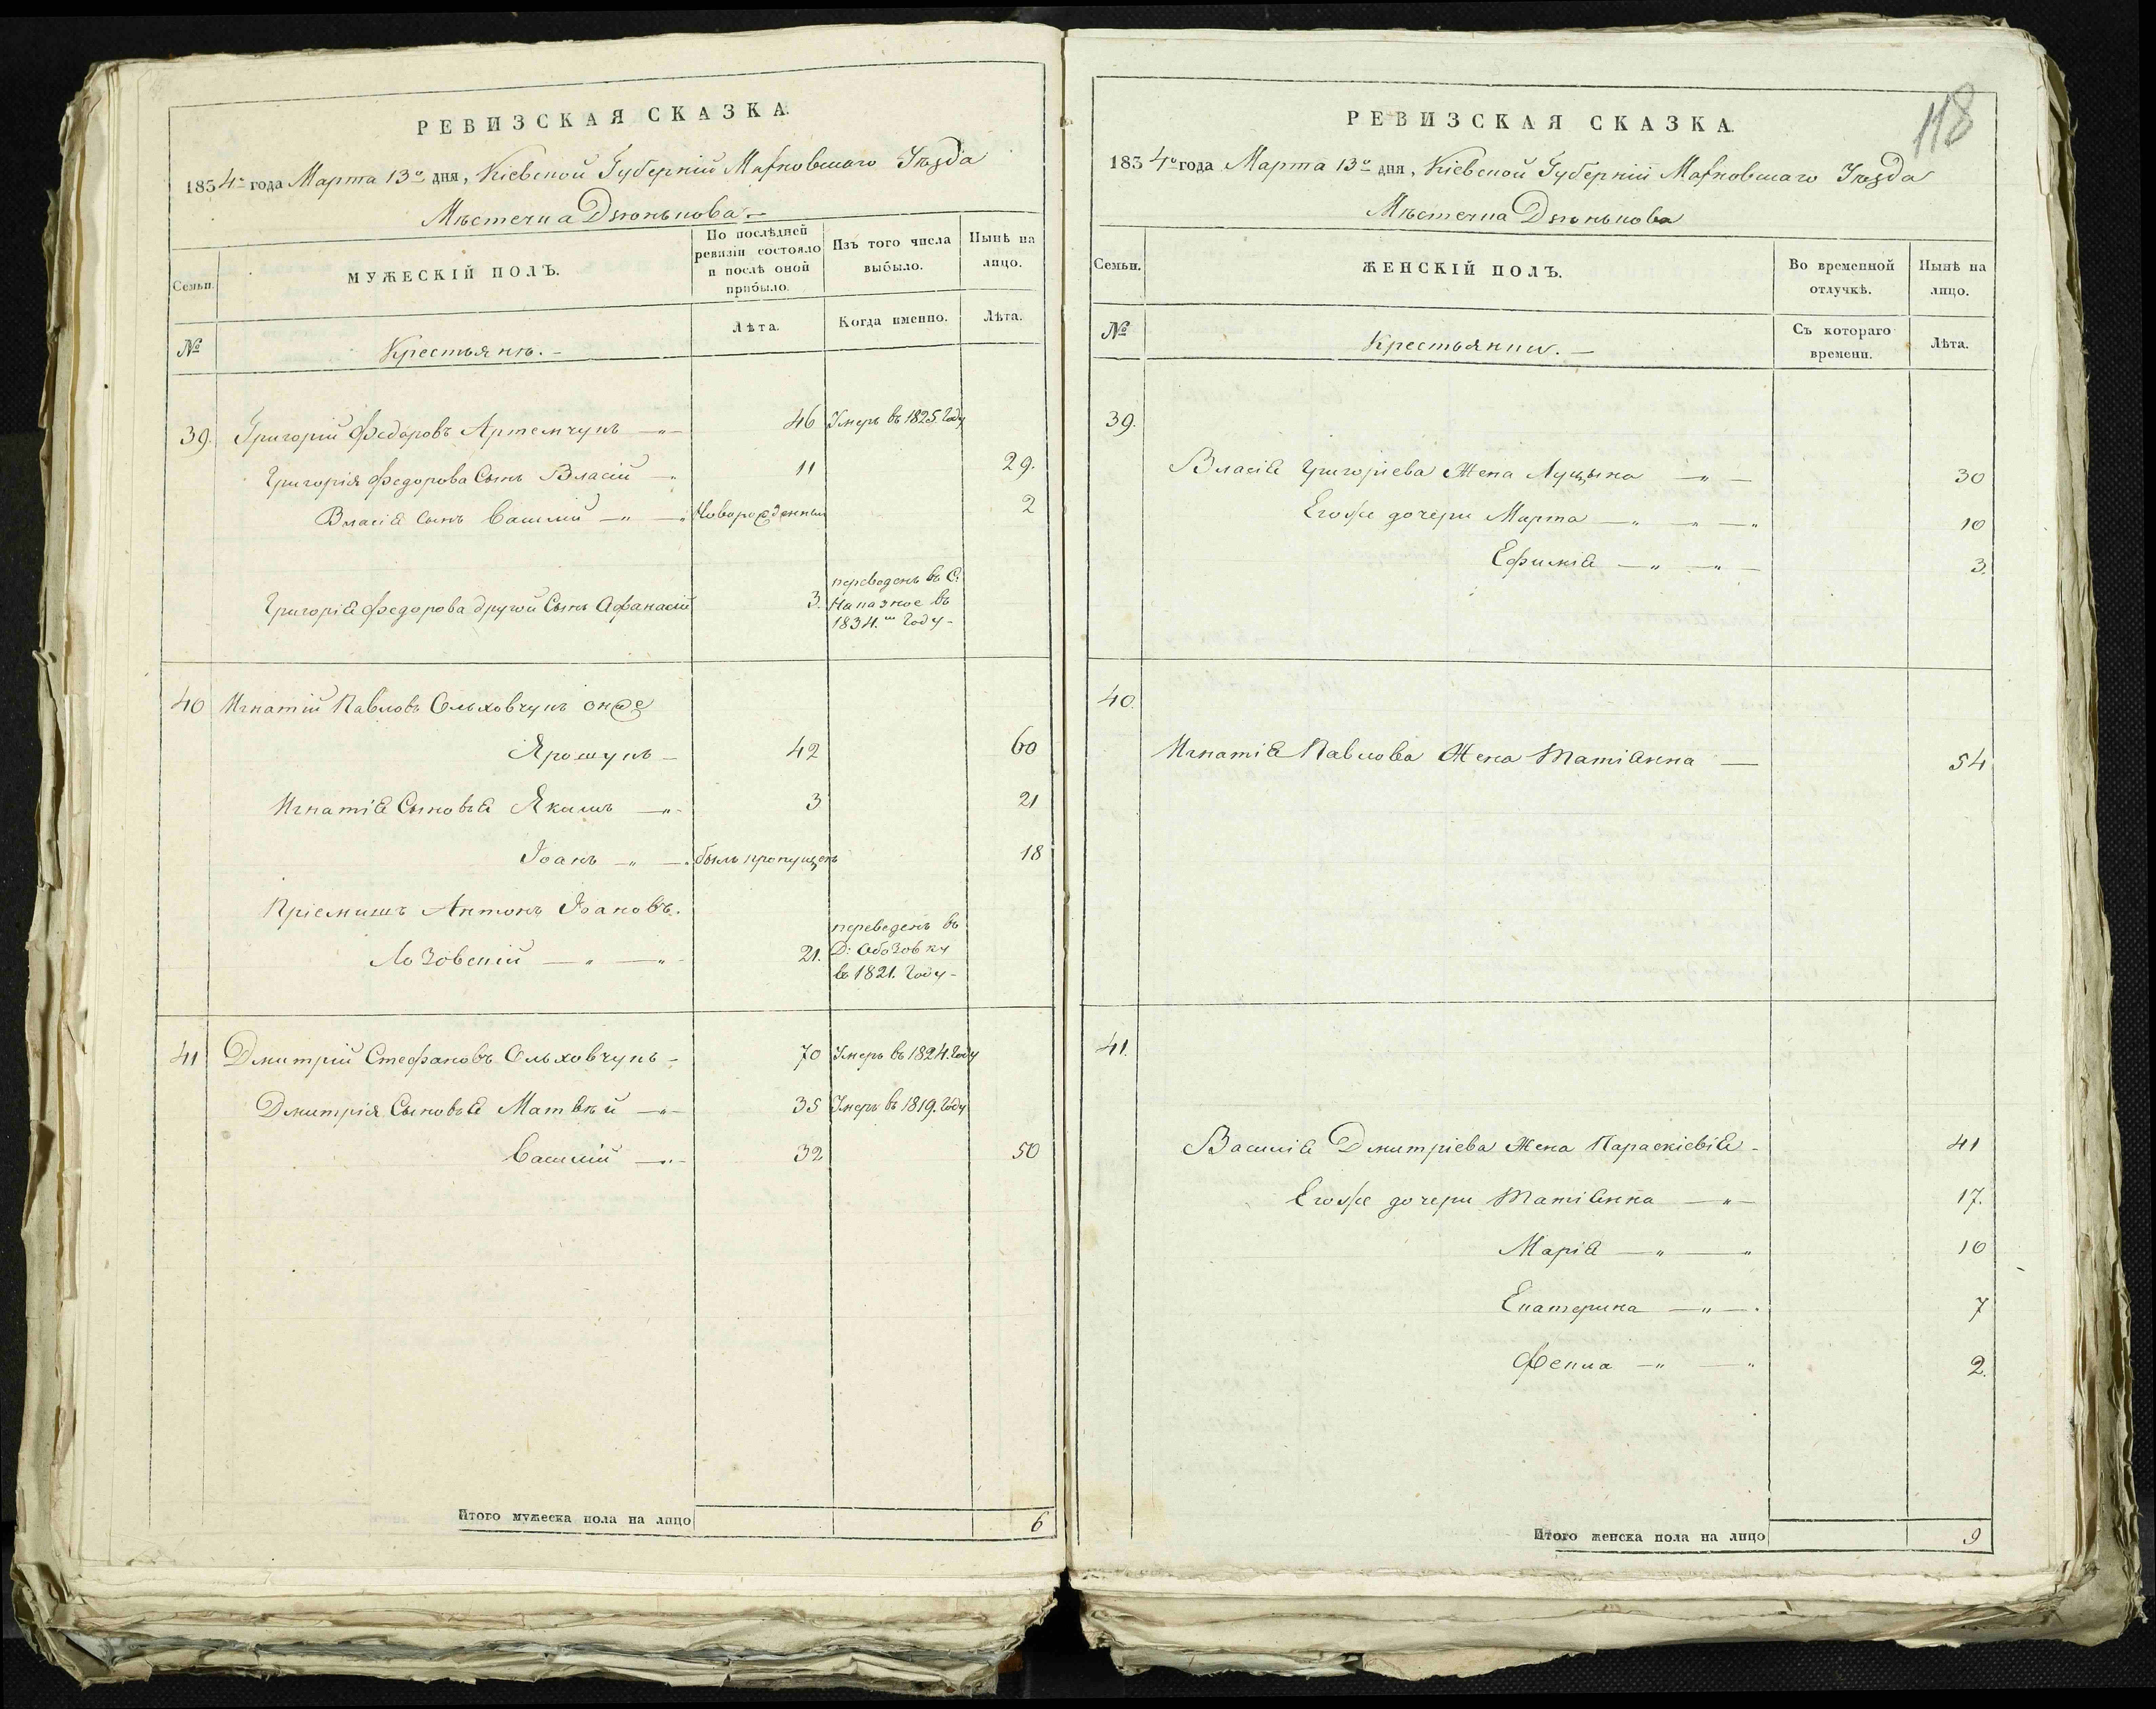 РЕВИЗСКАЯ СКАЗКА.
1834го года Марта 13го дня, Кіевской Губерніи Махновскаго Уѣзда
Мѣстечка Дзюнькова
Семьи.
МУЖЕСКІЙ ПОЛЪ.
По послѣдней ревизіи состояло и послѣ оной прибыло.
Изъ того числа выбыло.
Нынѣ на лицо.
№
Крестьянѣ.
Лѣта.
Когда именно.
Лѣта.
39. Григорій Федоровъ Артемчукъ 46 Умеръ въ 1825. Году
Григорія Федорова Сынъ Власій 11 29.
Власія Сынъ Василій Новорожденный 2
Григорія Федорова другой Сынъ Афанасій 3. переведенъ въ С:
въ
1834.мъ Году
40 Игнатій Павловъ Ольховчукъ онже
Ярошукъ 42 60
Игнатія Сыновья Якимъ 3 21
Іоанъ былъ пропущенъ 18
Пріемишъ Антонъ Іоановъ.
Лозовскій 21. переведенъ въ
Д: Обозовку
въ 1821. Году
41 Дмитрій Стефановъ Ольховчукъ 70 Умеръ въ 1824. Году
Дмитрія Сыновья Матвѣй 35 Умеръ въ 1819. Году
Василій 32 50
Итого мужеска пола на лицо 6
118
РЕВИЗСКАЯ СКАЗКА.
1834го года Марта 13го дня, Кіевской Губерніи Махновскаго Уѣзда
Мѣстечка Дзюнькова
Семьи.
ЖЕНСКІЙ ПОЛЪ.
Во временной отлучкѣ.
Нынѣ на лицо.
№
Крестьянки.
Съ котораго времени.
Лѣта.
39.
Власія Григоріева Жена Луцына 30
Егоже дочери Марта 10
Ефимія 3.
40.
Игнатія Павлова Жена Татіанна 54
41.
Василія Дмитріева Жена Параскіевія 41
Егоже дочери Татіанна 17.
Марія 10
Екатерина 7
Фекла 2.
Итого женска пола на лицо 9